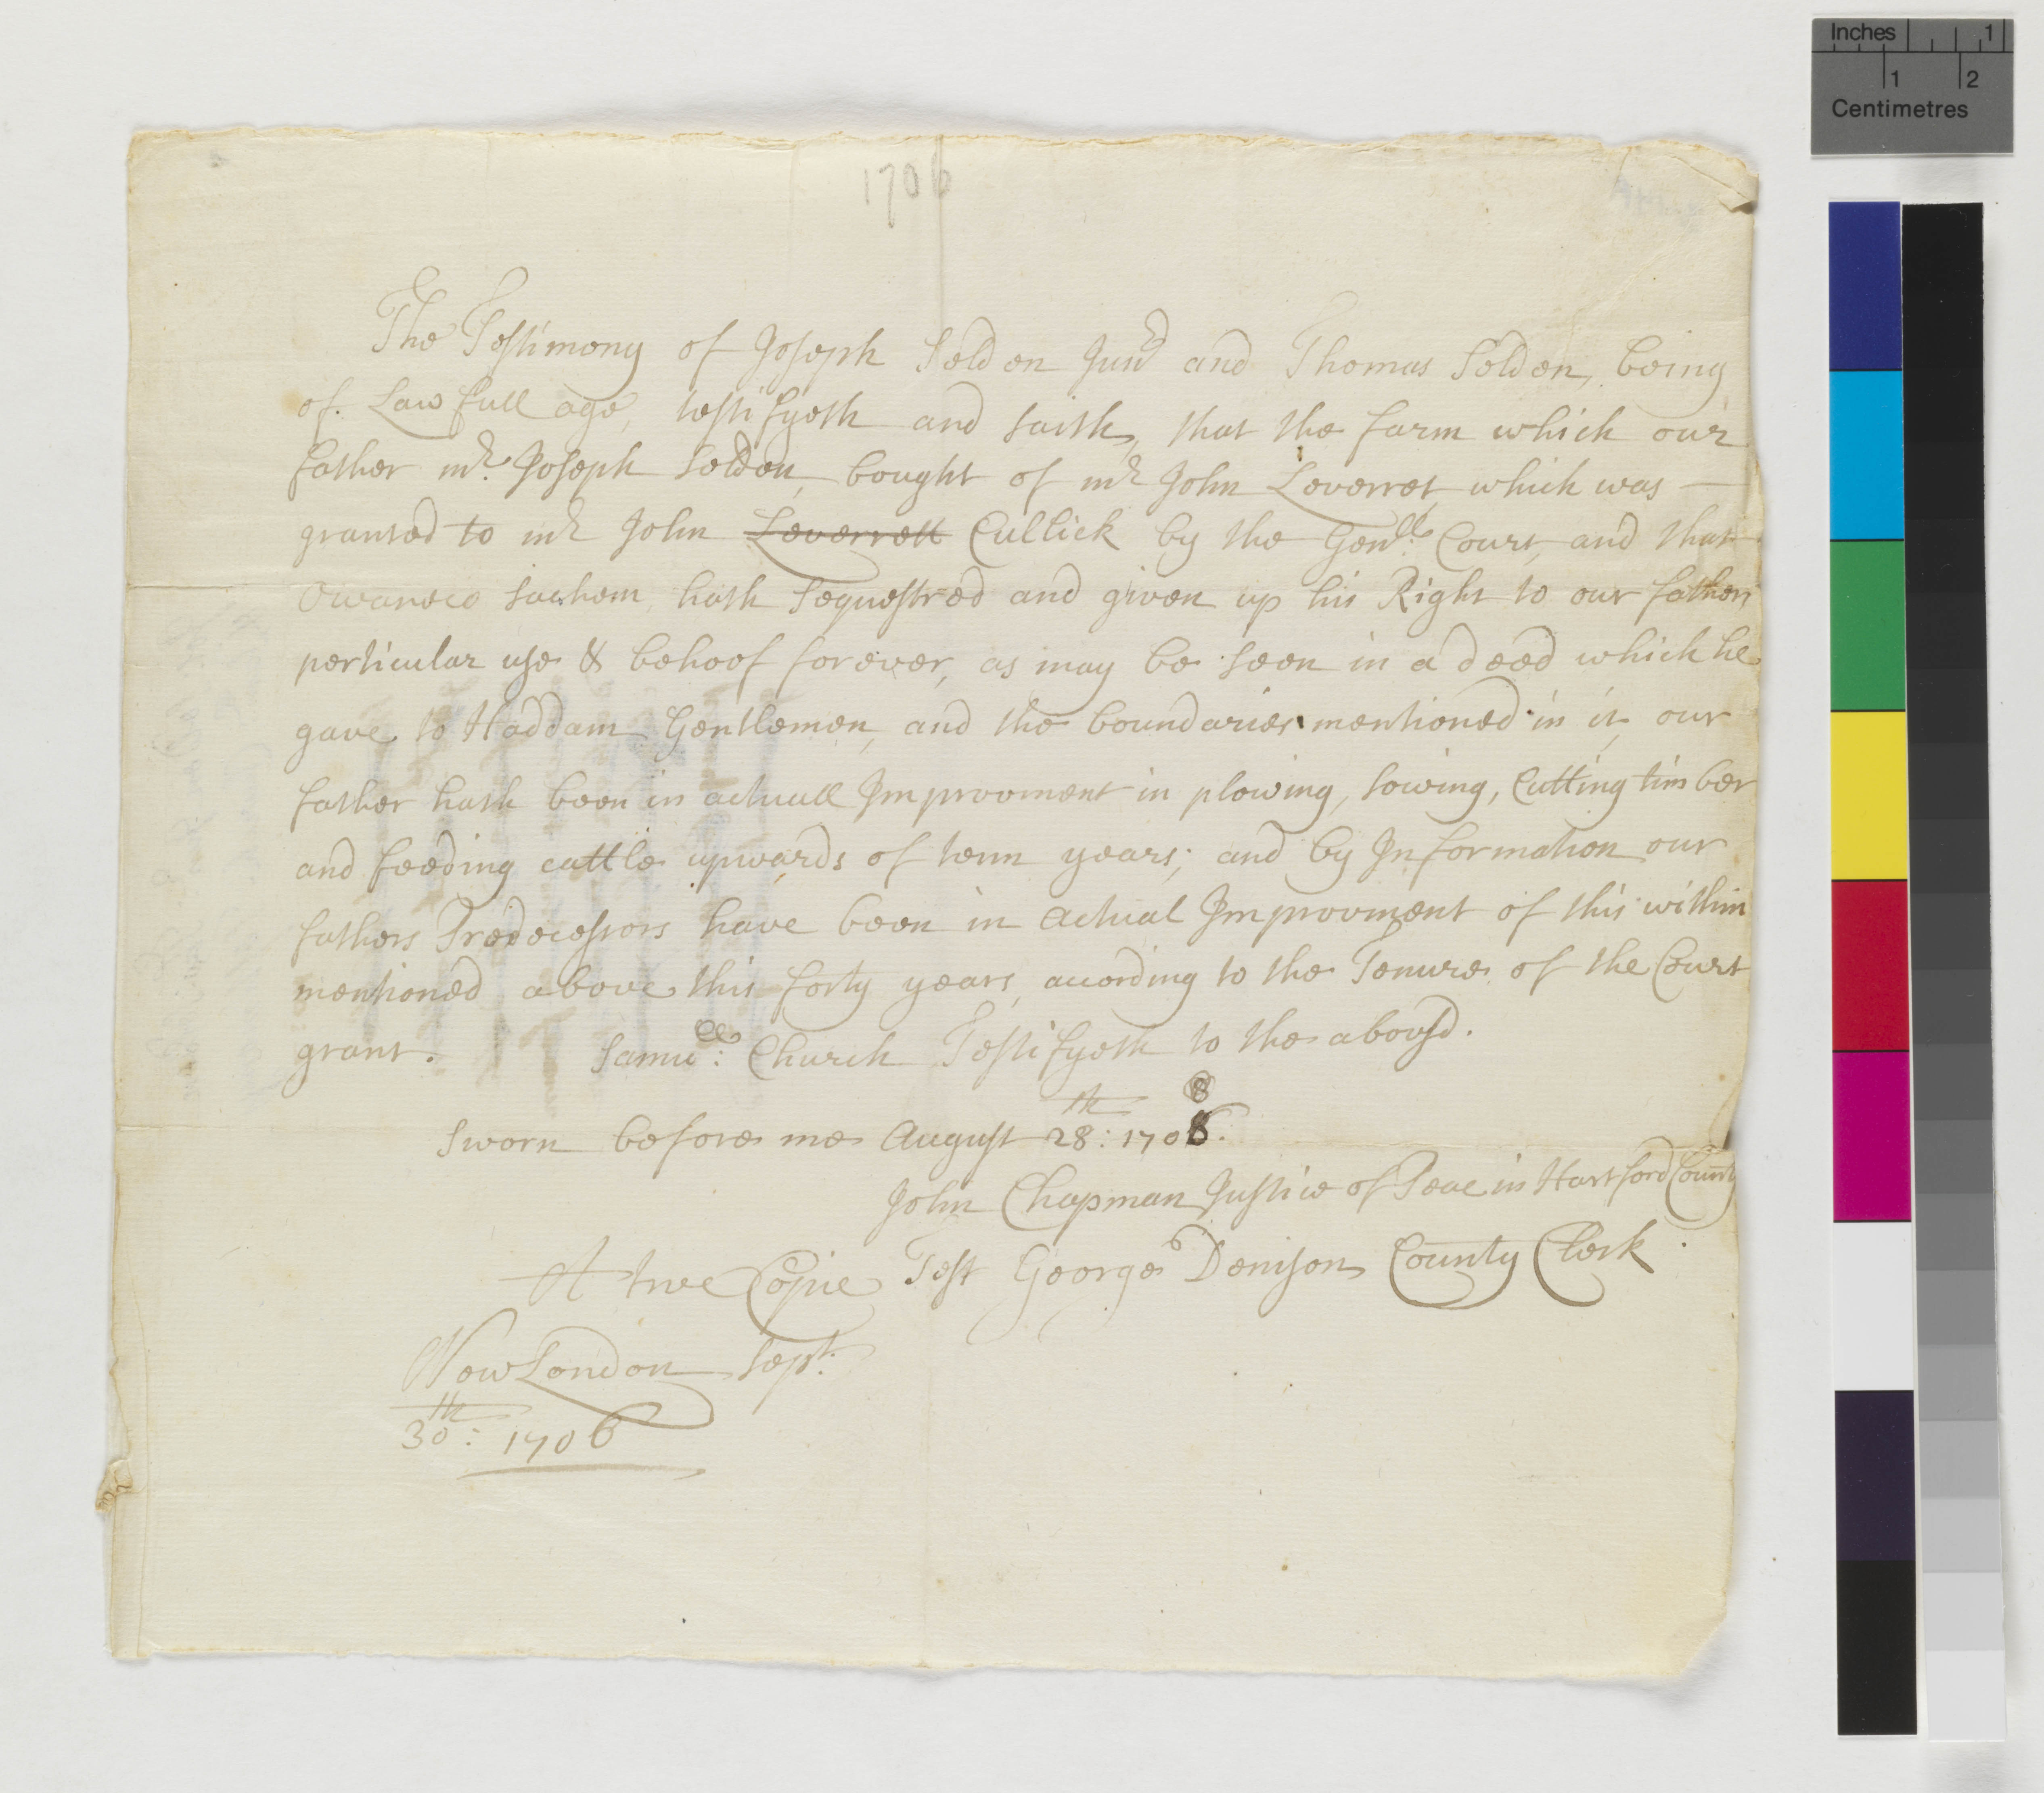 1706
The Testimony of Joseph Selden Junr and Thomas Selden, being
of Lawfull age, testifyeth and saith, that the farm which our
father mr. Joseph Selden, bought of mr John Leverret which was —
granted to mr John Leverrett Cullick by the Genll: Court, and that
Owaneco sachem, hath Sequestred and given up his Right to our fathers
perticular use & behoof forever, as may be seen in a deed which he
gave to Haddam Gentlemen, and the boundaries mentioned in it, our
father hath been in actuall Improvment in plowing, sowing, Cutting timber
and feeding cattle upwards of tenn years; and by Information our
fathers Predecessors have been in actual Improvment of this within
mentioned above this forty years, acording to the Tenure of the Court
grant. Samuell: Church Testifyeth to the abovsd.
Sworn before me August 28th: 1706.
8
John Chapman Justice of Peace in Hartford County
A true Copie Test George Denison County Clerk
New London Sept.
30th: 1706
Inches 1
1 2
Centimetres